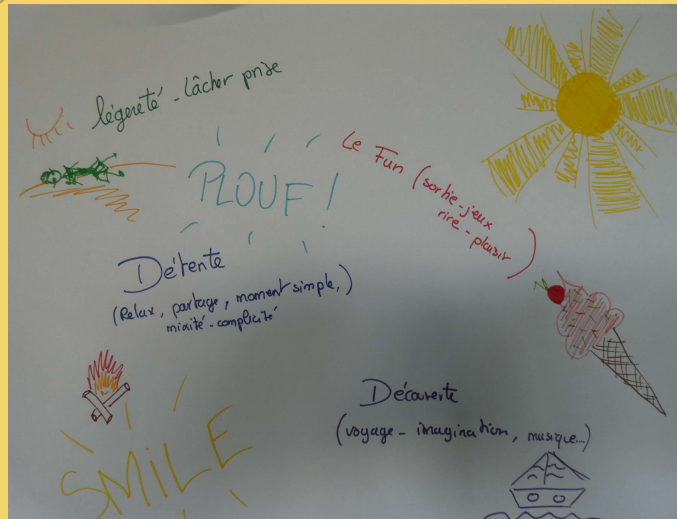 légereté - lâcher prise
PLOUF !
Le Fun (sortie - jeux
rire - plaisir)
Détente
(Relax, partage, moment simple,)
mixité - complicité
Découverte
(voyage - imagination, musique...)
SMILE